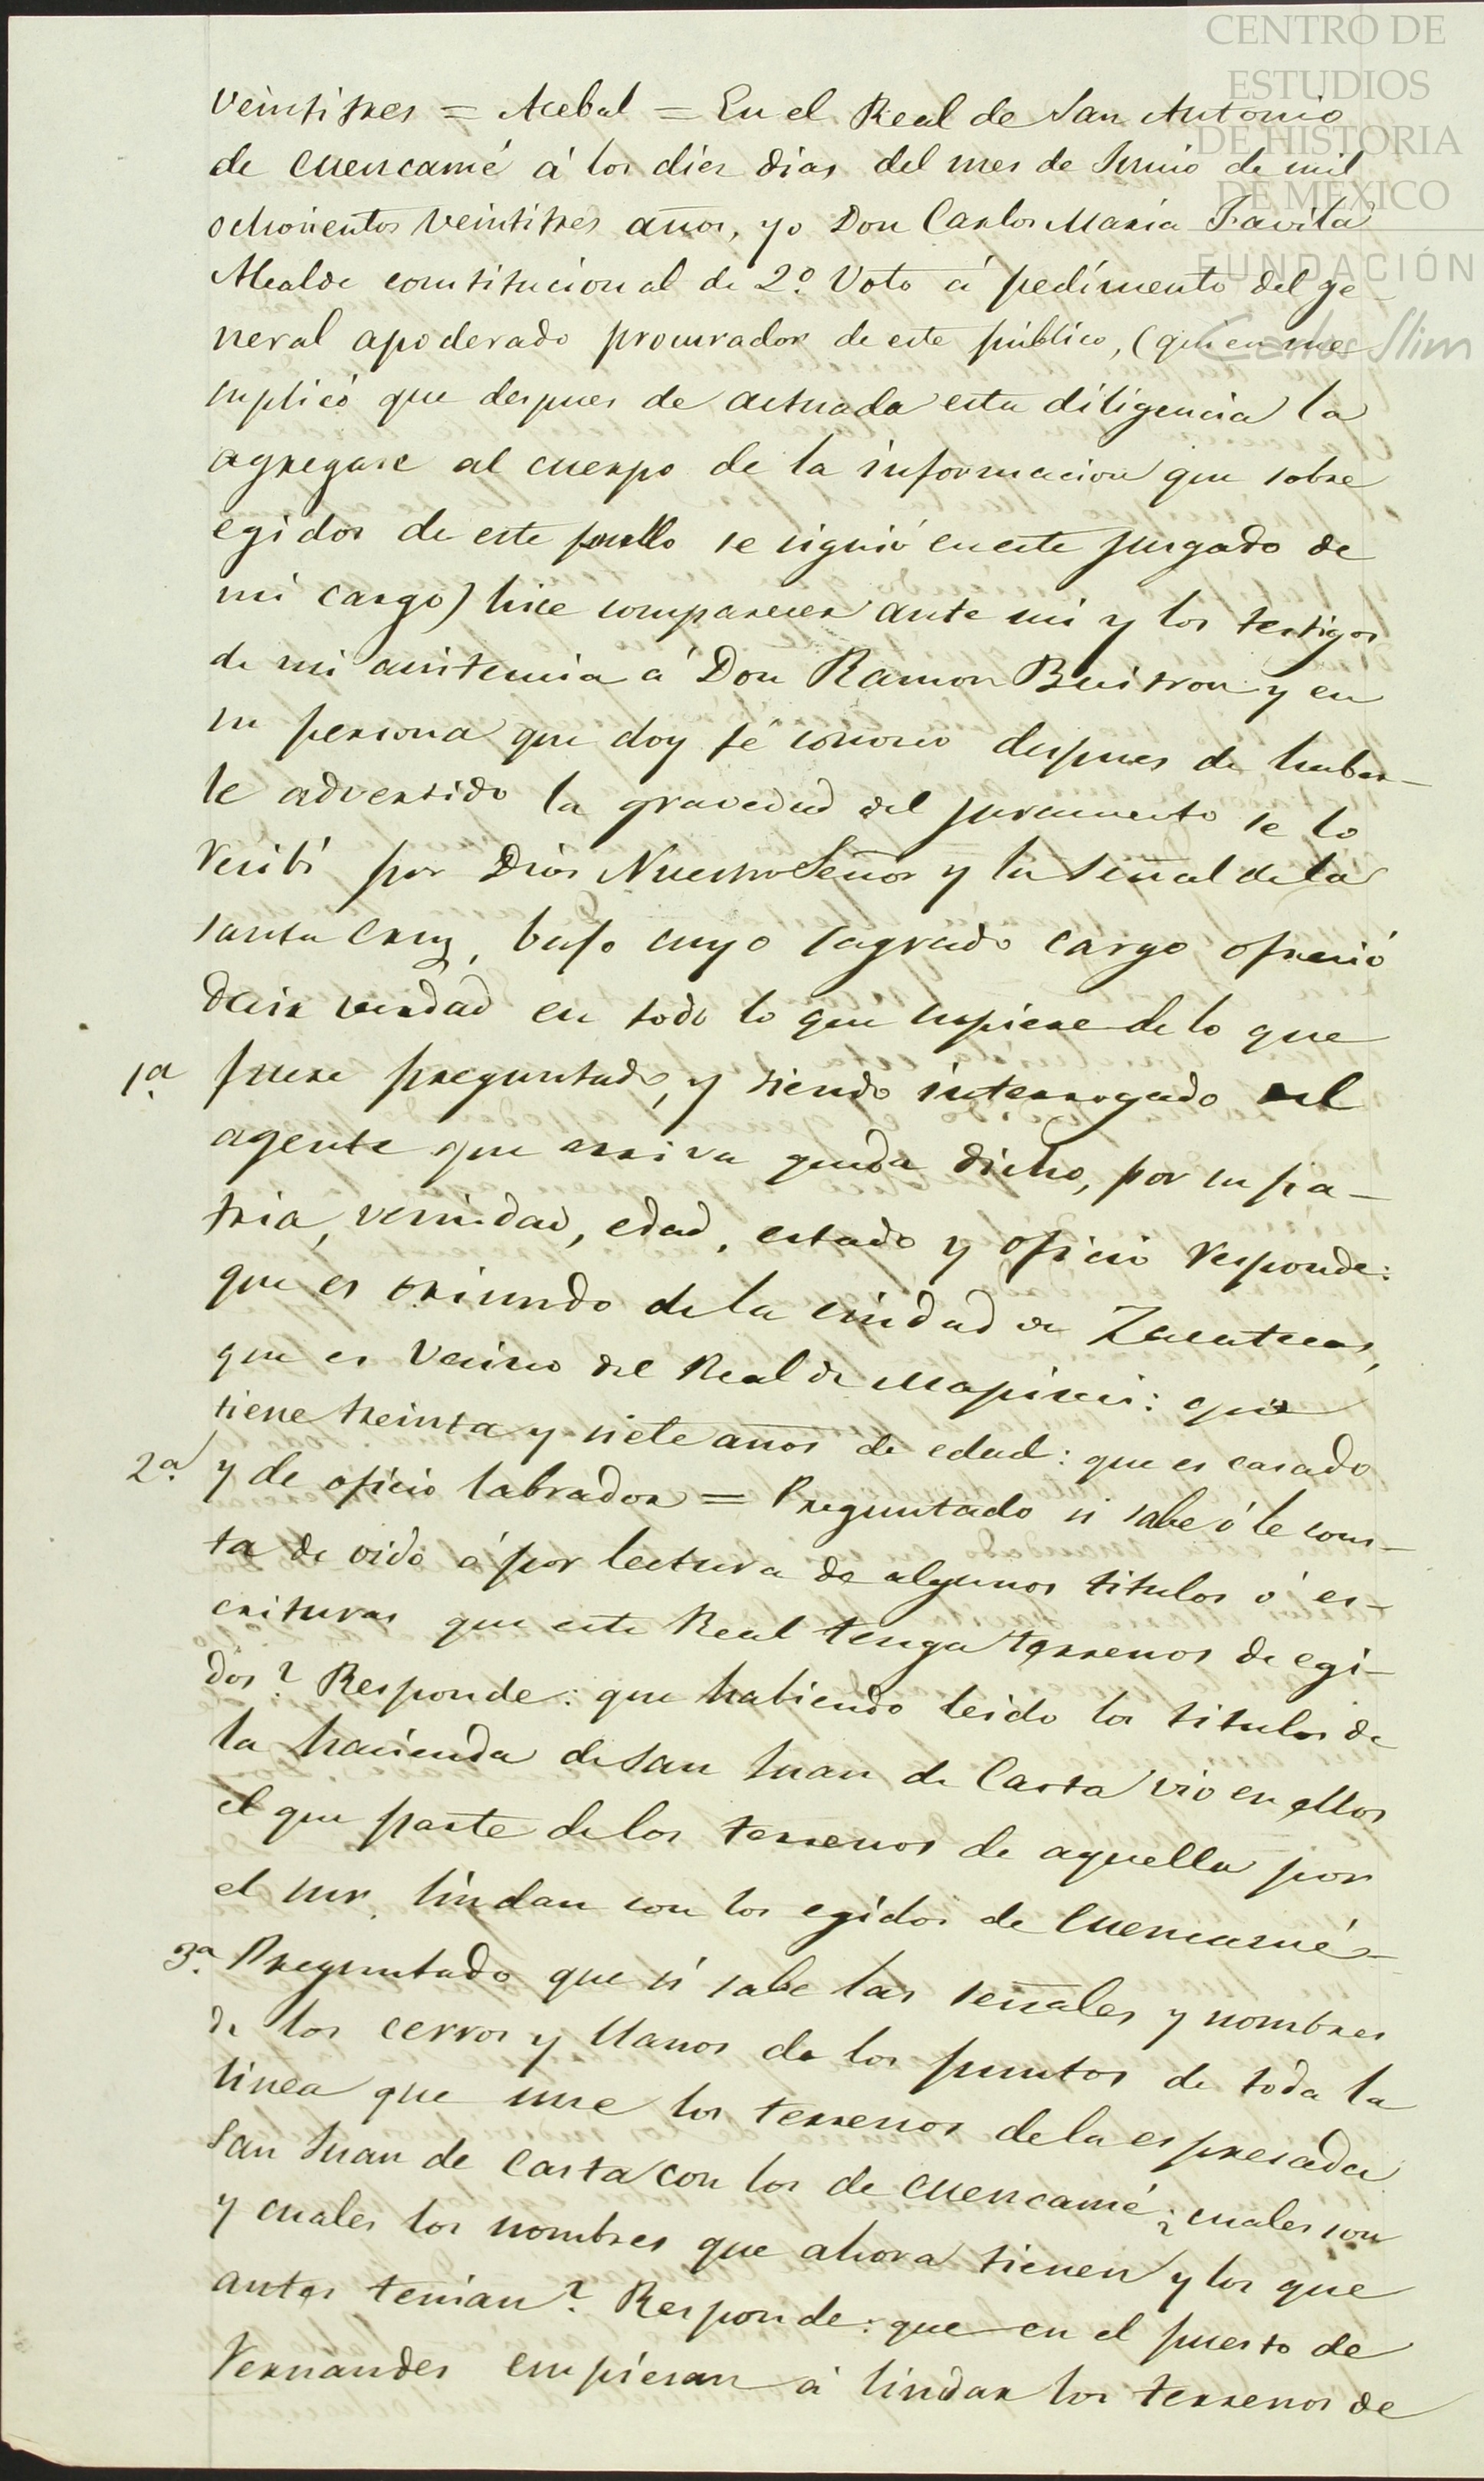 CENTRO DE
ESTUDIOS
DE HISTORIA
DE MÉXICO
FUNDACIÓN
Carlos Slim
veintitres = Acebal = En el Real de San Antonio
de Cuencamé á los diez dias del mes de Junio de mil
ochocientos veintitres años, yo Don Carlos Maria Favila
Alcalde constitucional de 2º Voto á pedimento del ge-
neral apoderado procurador de este público, (quien me
suplicó que despues de actuada esta diligencia la
agregase al cuerpo de la informacion que sobre
egidos de este pueblo se siguió en este jusgado de
mi cargo) hice comparecer ante mi y los testigos
de mi asistencia á Don Ramon Buitron y en
su persona que doy fé conosco despues de haber-
le advertido la gravedad del juramento se lo
recibí por Dios Nuestro Señor y la señal de la
santa Cruz, bajo cuyo sagrado cargo ofreció
decir verdad en todo lo que supiere de lo que
1ª. fuere preguntado, y siendo interrogado al
agente que arriva queda dicho, por su pa-
tria, vecindad, edad, estado y oficio responde:
que es oriundo de la ciudad de Zacatecas,
que es vecino del Real de Mapimí: que
tiene treinta y siete años de edad: que es casado
2ª. y de oficio labrador = Preguntado si sabe ó le cons-
ta de oido ó por lectura de algunos titulos ó es-
crituras que este Real tenga terrenos de egi-
dos? Responde: que habiendo leido los titulos de
la hacienda de San Juan de Casta vió en ellos
el que parte de los terrenos de aquella por
el sur, lindan con los egidos de Cuencamé-
3ª. Preguntado que si sabe las señales y nombres
de los cerros y llanos de los puntos de toda la
linea que une los terrenos de la espresada
San Juan de Casta con los de Cuencamé ¿cuales son
y cuales los nombres que ahora tienen y los que
antes tenian? Responde: que en el puerto de
Fernandes empiesan á lindar los terrenos de